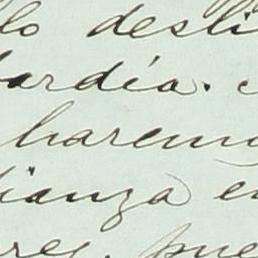 lo desli
ardía.
haremo
ianza en
res. pue